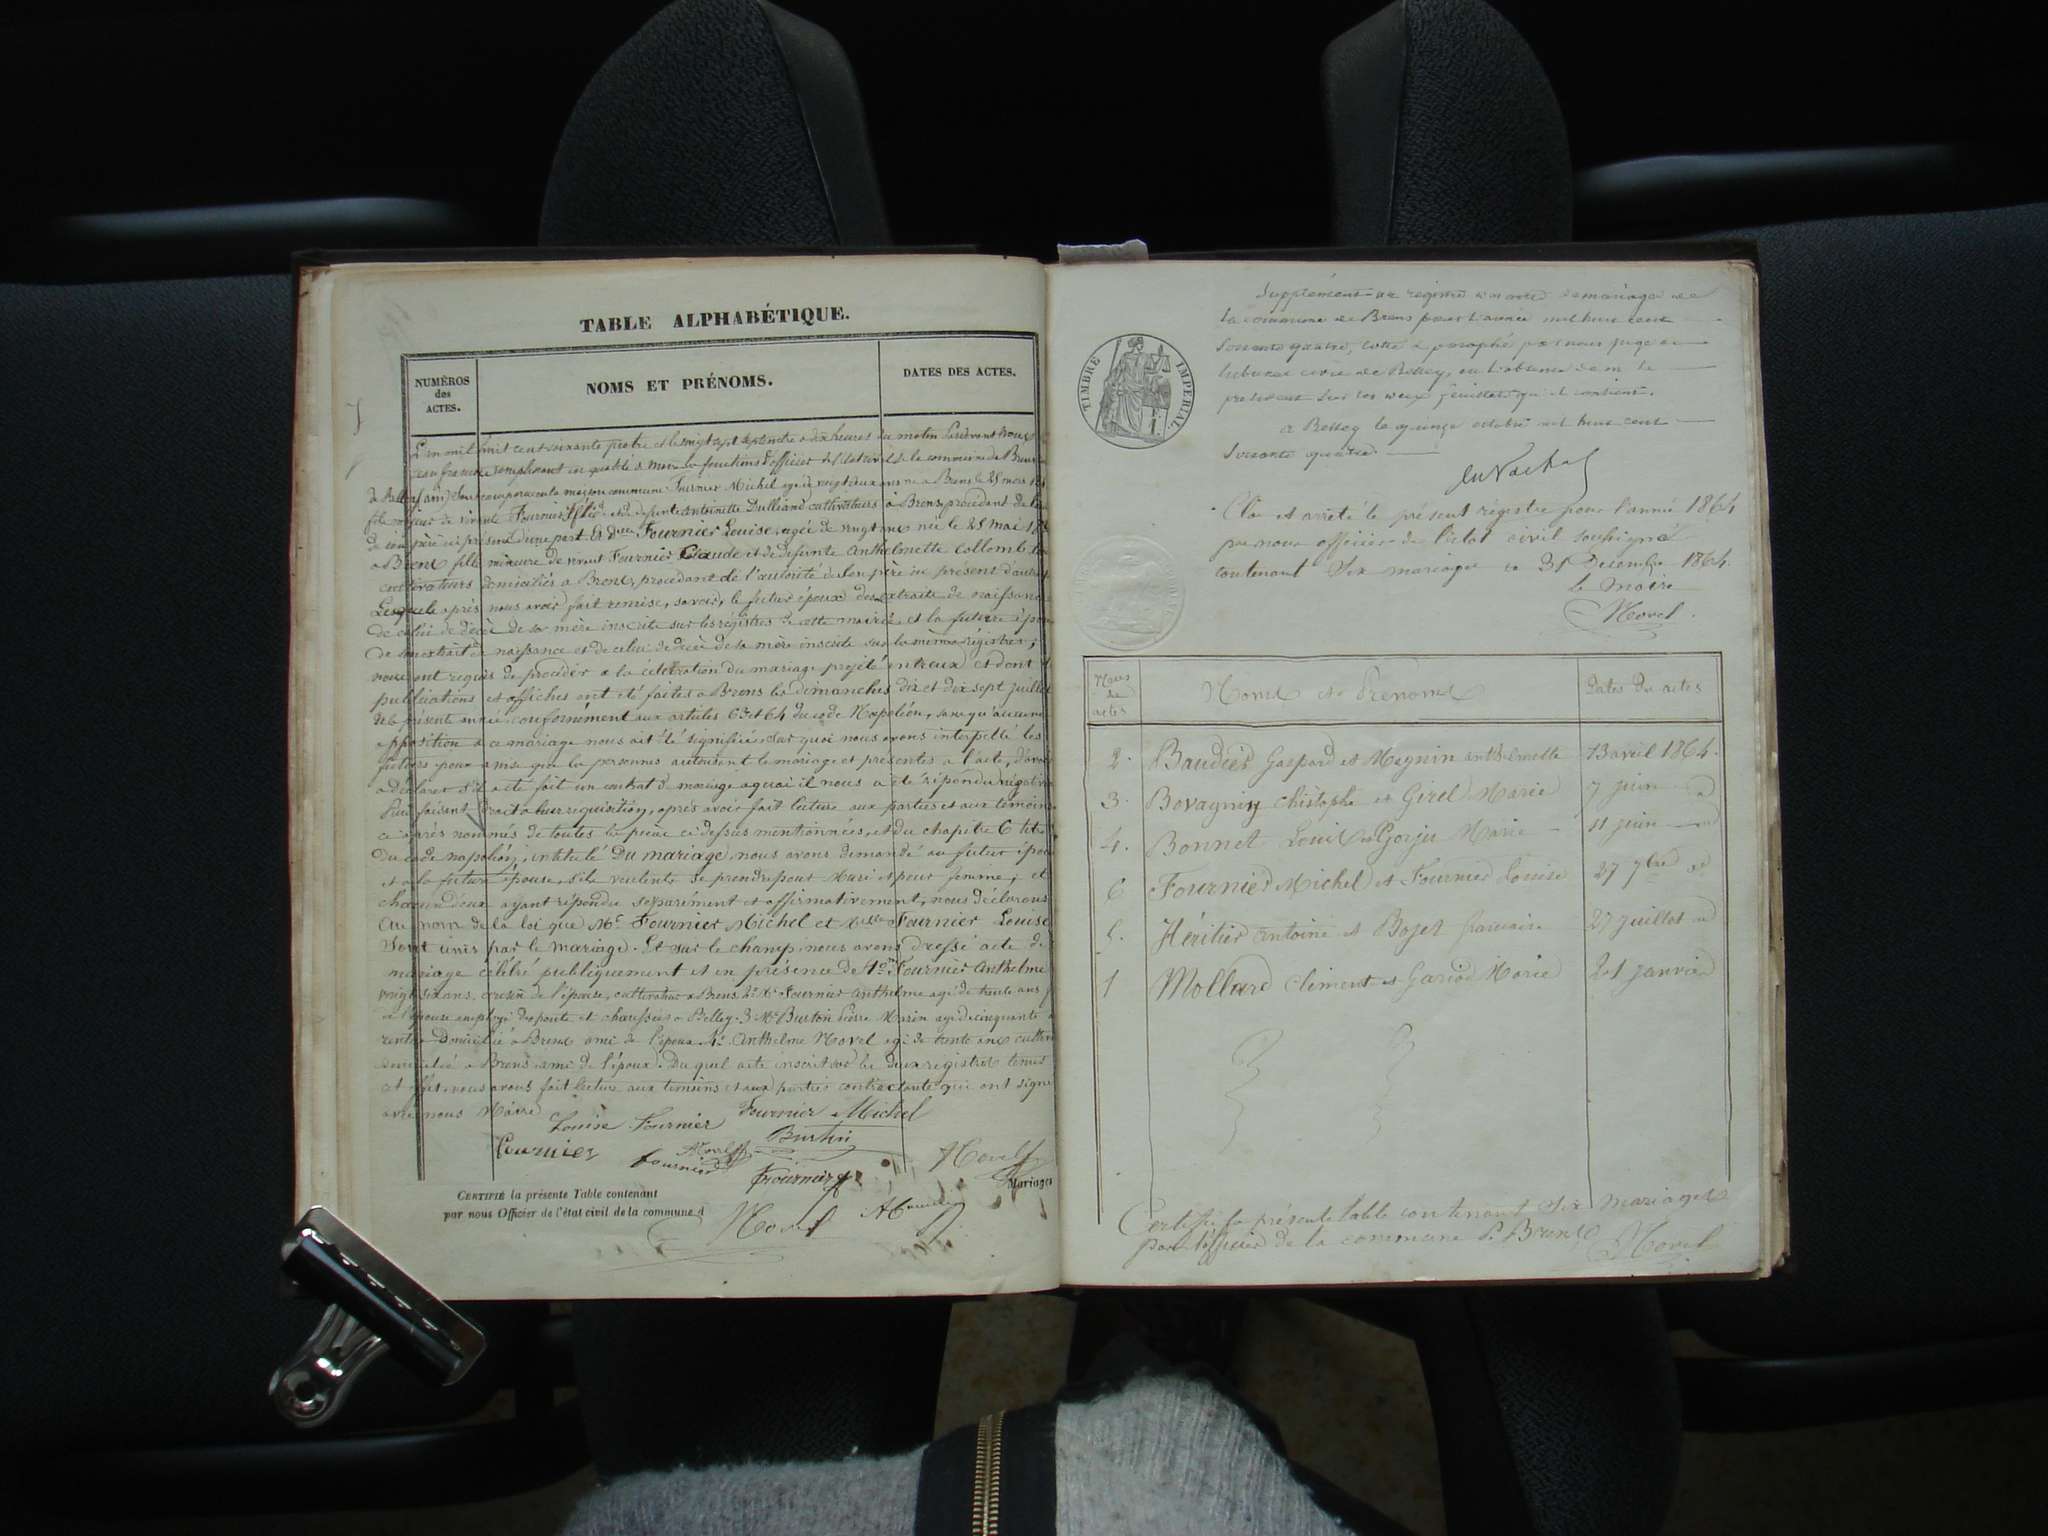 TABLE ALPHABÉTIQUE.
NUMÉROS
des
ACTES.
NOMS ET PRÉNOMS.
DATES DES ACTES.
L'an mil huit cent soixante quatre et le vingt sept septembre à dix heures du matin Pardevant Nous
remplissant en qualité de maire les fonctions d'officier de l'état civil de la commune de Brens
maison commune Fournier Michel agé de vingt deux ans né à Brens le 25 mars
fils majeur de vivant Fournier et de defunte antoinette Dulliand cultivateurs à Brens, procédant de
son père ici présent d'une part Et Dlle Fournier Louise, agée de vingt ans née le 25 mai
à Brens fille mineure de vivant Fournier Claude et de defunte anthelmette Collomb
cultivateurs domiciliés à Brens, procédant de l'autorité de son père ici présent d'autre
Lesquels après nous avoir fait remise, savoir, le futur époux des extraits de naissance
de celui de décès de sa mère inscrits sur les régistres de cette mairie et la future
de son extrait de naissance et de celui de décès de sa mère inscrits sur les mêmes régistres;
nous ont requis de procéder à la célébration du mariage projeté entreux et dont
publications et affiches ont été faites à Brens les dimanches dix et dix sept juillet
de la présente année conformément aux articles 63 et 64 du code Napoléon, sans qu'aucune
opposition à ce mariage nous ait été signifiée, sur quoi nous avons interpellé les
futurs époux ainsi que les personnes autorisant le mariage et présentes à l'acte, d'avoir
à déclarer s'il a été fait un contrat de mariage a quoi il nous a été répondu négativ
Puis faisant droit à leur requisition, après avoir fait lecture aux parties et aux témoins
ci après nommés de toutes les pièces ci dessus mentionnées, et du chapitre 6 titre
Du code napoléon, intitulé Du mariage, nous avons demandé au futur époux
et à la future épouse, s'ils veulent se prendre pour Mari et pour femme; et
chacun d'eux ayant répondu séparement et affirmativement, nous déclarons
au nom de la loi que Mr Fournier Michel et Melle Fournier Louise
sont unis par le mariage. Et sur le champ, nous avons dressé acte de
mariage célébré publiquement et en présence de 1º Fournier Anthelme
vingt six ans cousin de l'épouse, cultivateur à Brens 2º Mr Fournier Anthelme agé de trente ans
à l'épouse employé des ponts et chaussées à Belley 3 Mr Burtin Pierre Marin agé de cinquante
rentier domicilié à Brens ami de l'époux 4º Anthelme Novel agé de trente ans cultiv
domicilié à Brens ami de l'époux. Du quel acte inscrit sur les deux registres tenus
nous avons fait lecture aux temoins et aux parties contractante qui ont signé
avec nous Maire
Louise Fournier Fournier Michel
Fournier Burtin Novel
Fournier Fournier
Mariages
CERTIFIÉ la présente Table contenant
par nous Officier de l'état civil de la commune d
Novel
TIMBRE IMPÉRIAL
Supplément au registre des actes de mariage de
la commune de Brens pour l'année mil huit cent
soixante quatre, cotté et paraphé par nous juge au
tribunal civil de Belley, en l'absence de m le
président sur les deux feuillets qu'il contient.
à Belley le quinze octobre mil huit cent
soixante quatre
Clos et arrêté le présent régistre pour l'année 1864
par nous officier de l'état civil soussigné
contenant six mariages ce 31 Decembre 1864.
le maire
Novel.
Nos
de
actes
Noms et Prénoms
Dates des actes
2. Baudier Gaspard et Megnin anthelmette 13 avril 1864.
3. Bovagnin Chistophe et Girel Marie 7 juin d
4. Bonnet Louis et Gorju Marie 11 juin d
6 Fournier Michel et Fournier Louise 27 7bre d
5. Héritier Antoine et Bojet 27 juillet d
1 Mollard Clément et Gariod Marie 21 janvier
Certifié la présente table contenant six mariages
par l'officier de la commune de Brens Novel